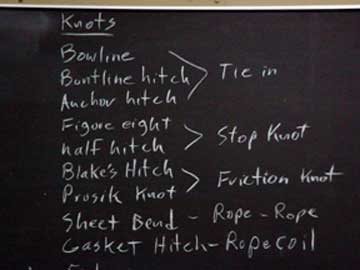 Knots
Bowline
Buntline hitch > Tie in
Anchor hitch
Figure eight
half hitch > Stop Knot
Blake's Hitch
Prosik Knot > Friction Knot
Sheet Bend - Rope - Rope
Gasket Hitch - Rope coil